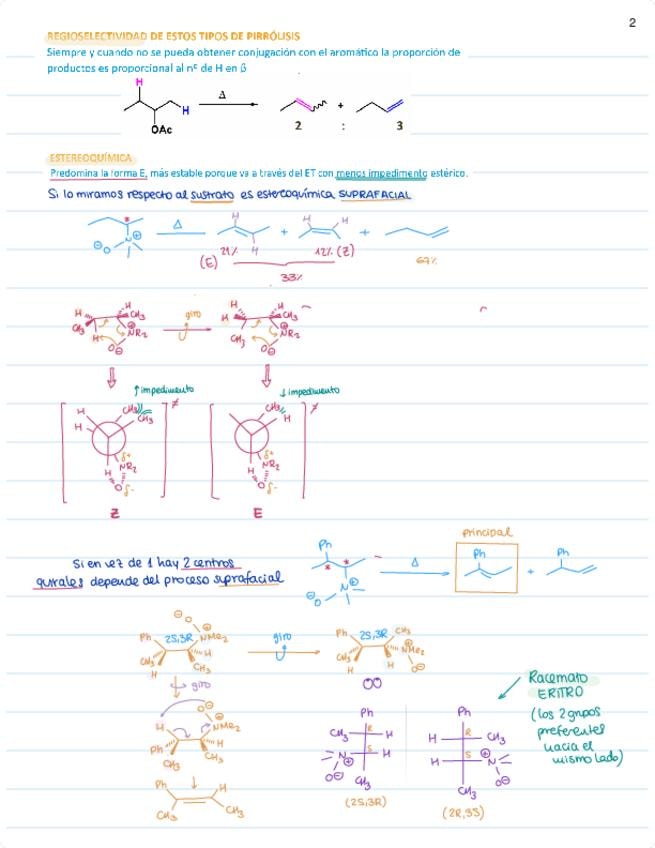 2
REGIOSELECTIVIDAD DE ESTOS TIPOS DE PIRRÓLISIS
Siempre y cuando no se pueda obtener conjugación con el aromático la proporción de
productos es proporcional al nº de H en β
H
H
Δ
+
OAc
2 : 3
ESTEREOQUÍMICA
Predomina la forma E, más estable porque va a través del ET con menos impedimento estérico.
Si lo miramos respecto al sustrato es estereoquímica SUPRAFACIAL
* Δ H H H
⊖O N⊕ + +
(E) 21% H 12% (Z) 67%
33%
H H CH3 giro H H CH3
CH3 H ⊕NR2 CH3 H ⊕NR2
O⊖ O⊖
↑impedimento ↓impedimento
H CH3 ≠ CH3 ≠
H CH3 H
δ+ δ+
H NR2 H NR2
O δ- O δ-
Z E
principal
Si en vez de 1 hay 2 centros
quirales depende del proceso suprafacial
Ph Ph Ph
* * Δ +
⊖O N⊕
⊖O ⊕
Ph 2S,3R NMe2 giro Ph 2S,3R CH3
CH3 H CH3 H CH3 NMe2
H H O⊖
giro
O⊖ ⊕
H NMe2
Ph CH3 H CH3
Ph H
CH3 CH3
Racemato
ERITRO
(los 2 grupos
preferentes
hacia el
mismo lado)
Ph Ph
CH3 R H H R CH3
N⊕ S H H S ⊕N
O⊖ CH3 CH3 O⊖
(2S,3R) (2R,3S)